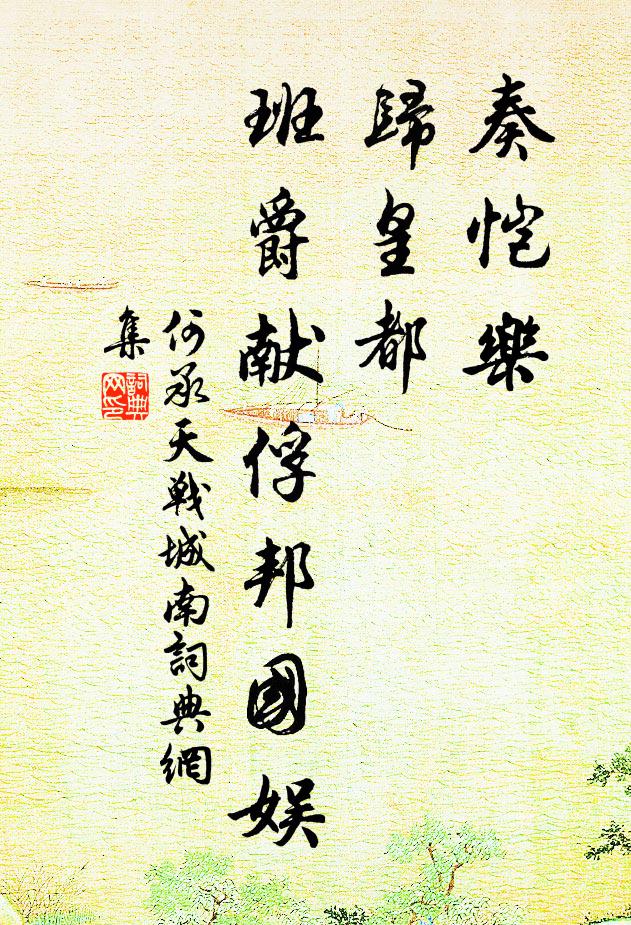 奏恺樂
歸皇都
班爵献俘邦國娱
何承天戰城南詞典網
集
詞典
网印